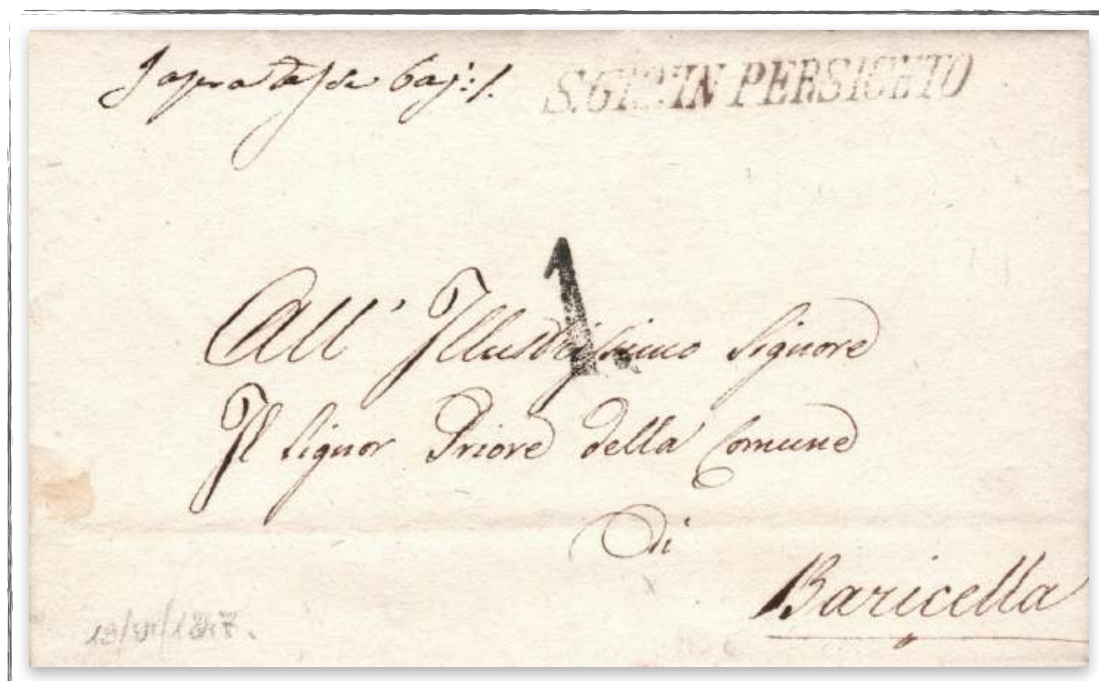 Sopratassa baj: 1.
S. GIO: IN PERSICETO
1
All' Illustrissimo Signore
Il Signor Priore della Comune
Di
Baricella